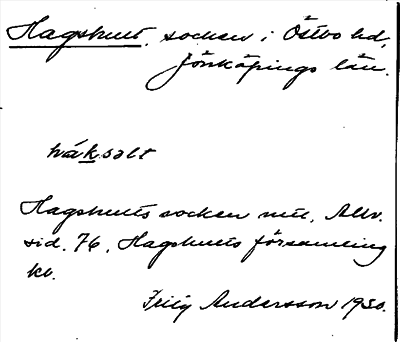 Hagshult, socken i Östbo hd,
Jönköpings län.
håksalt
Hagshults socken mit. Allv.
sid. 76, Hagshults församling
kb.
Andersson 1930.